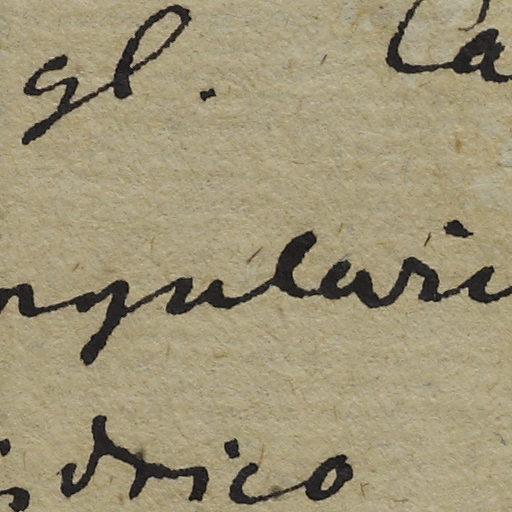 gl. Ca
ngulari
idrico